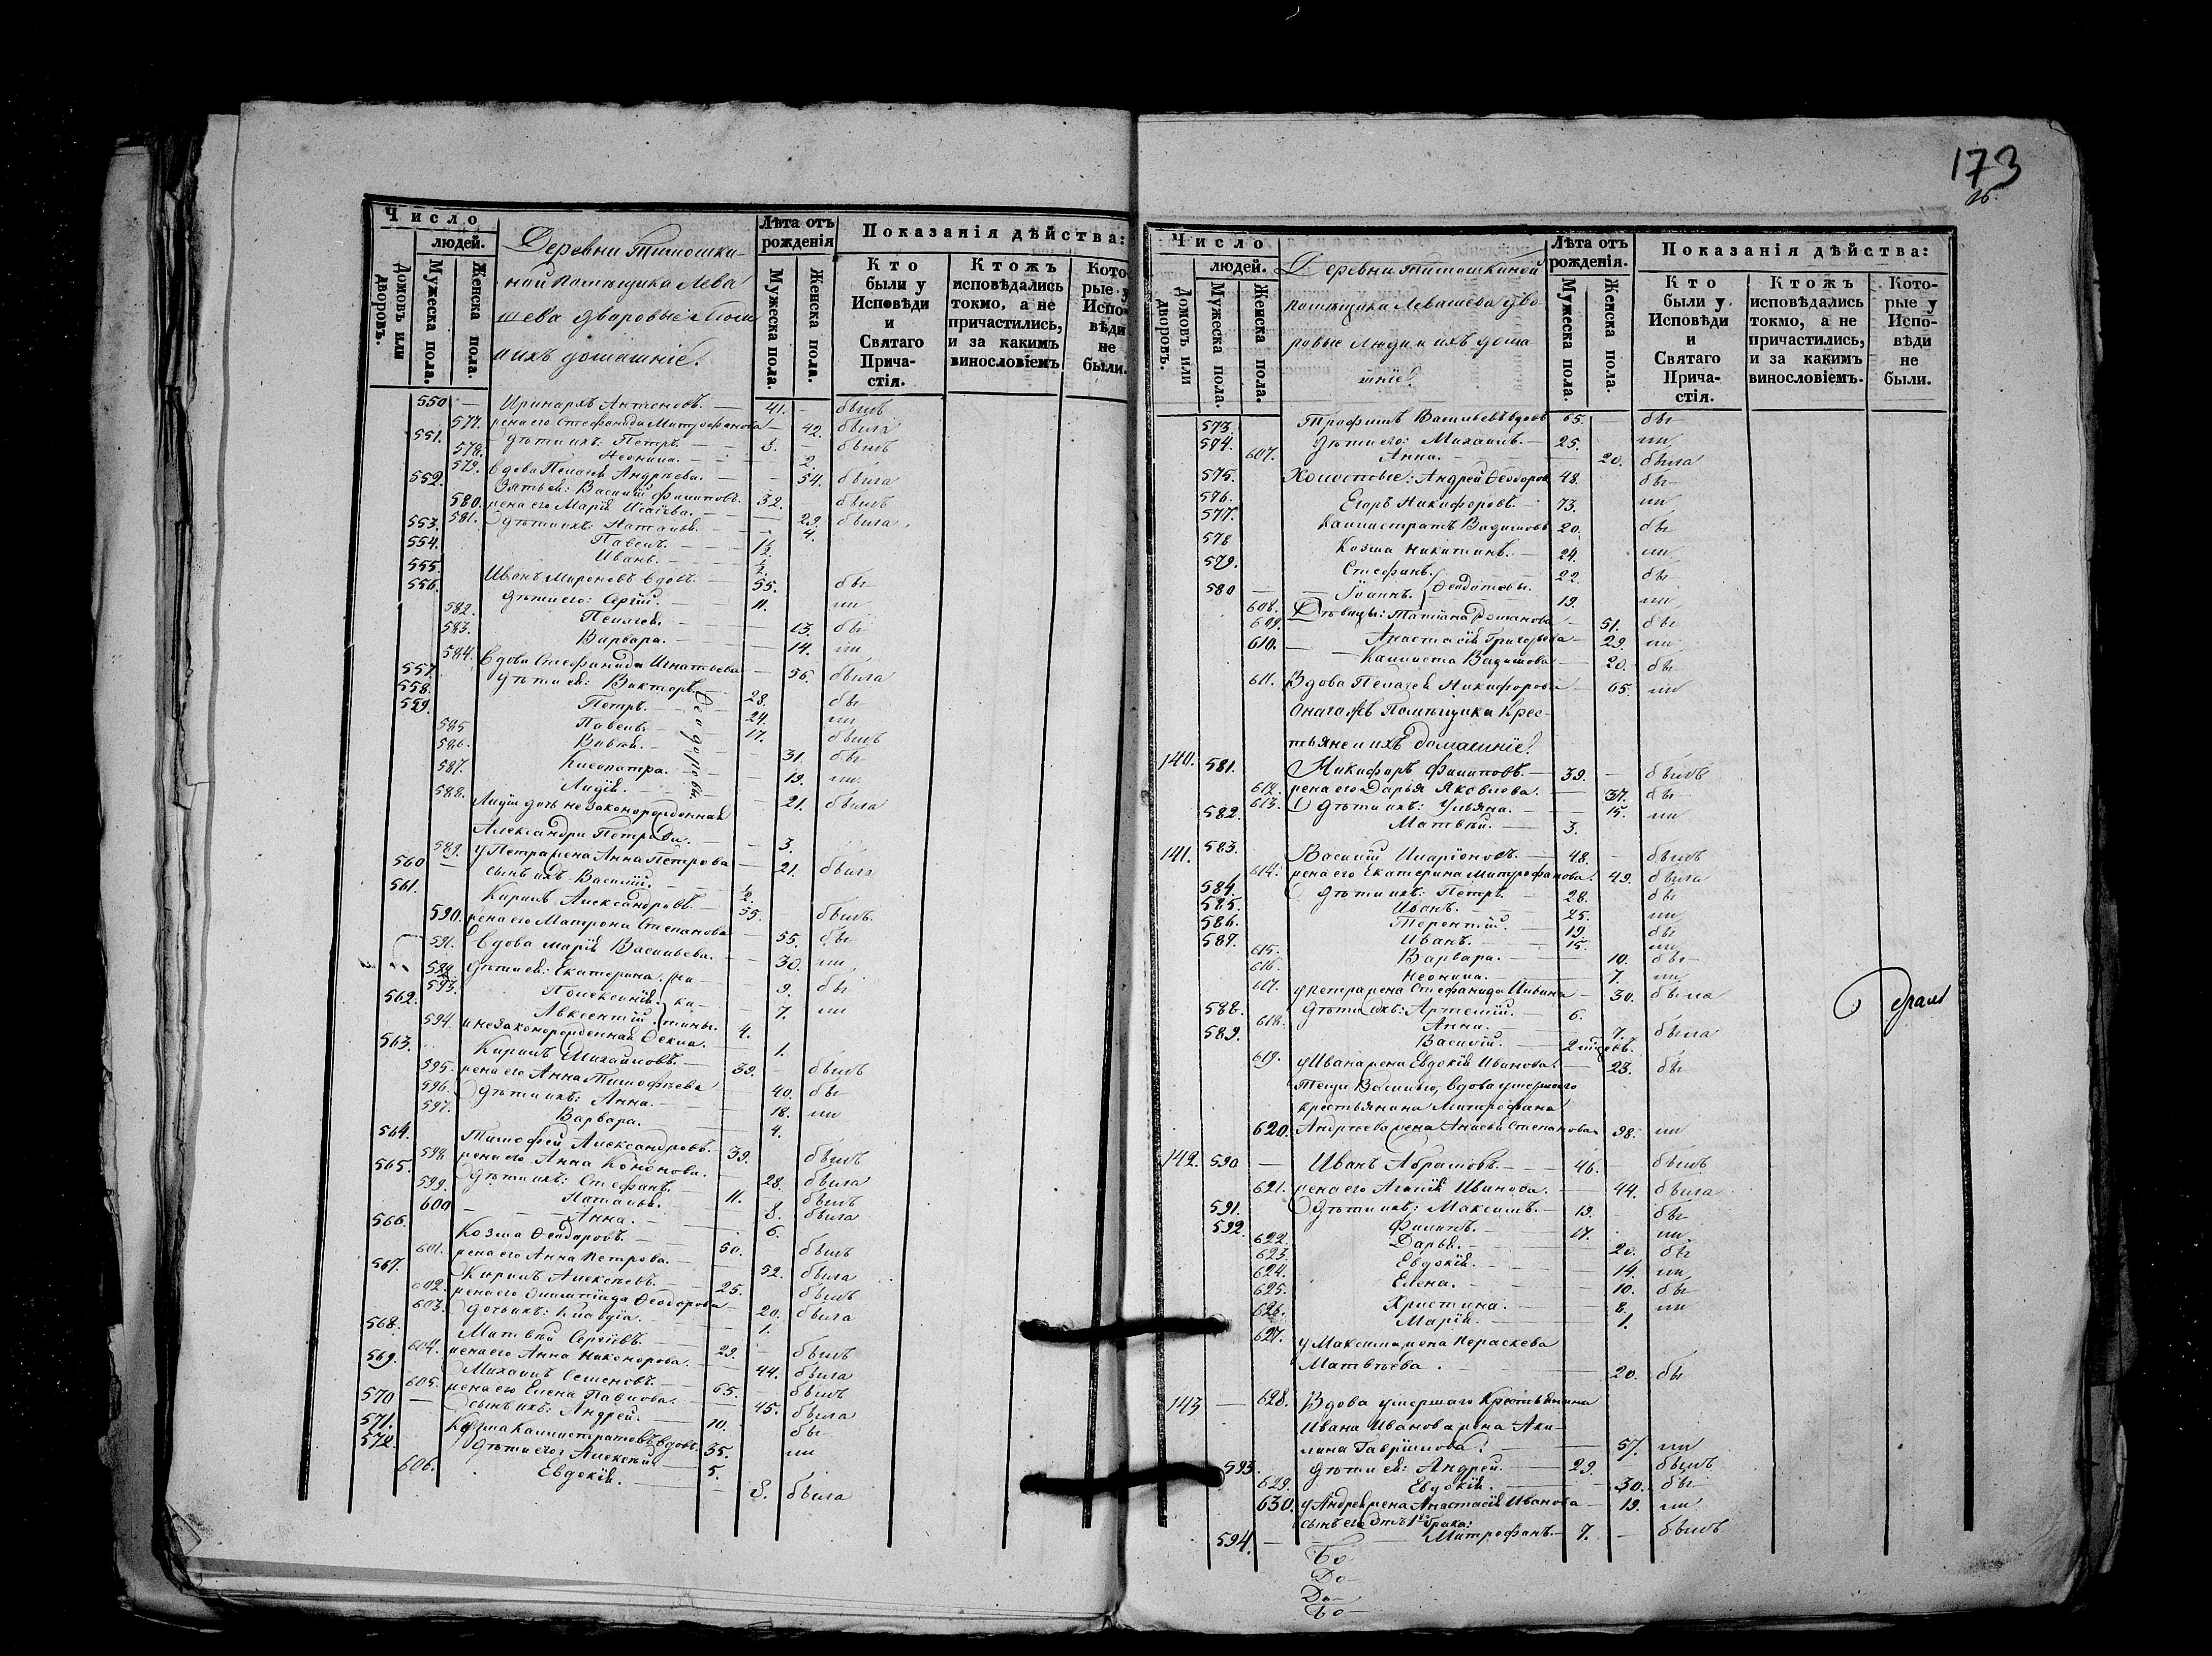 173
Число
людей.
Домовъ или дворовъ.
Мужеска пола.
Женска пола.
Деревни Тимошки-
ной помѣщика Лева
шева дворовые Люди
и ихъ домашніе.
Лѣта отъ рожденія
Мужеска пола.
Женска пола.
Показанія дѣйства:
Кто были у Исповѣди и Святаго Причастія.
Ктожъ исповѣдались токмо, а не причастились, и за какимъ винословіемъ
Которые у Исповѣди не были.
550 — Иринархъ Антоновъ. — 41. — былъ
577. жена его Стефанида Митрофанова — 42. была
551. дѣти ихъ: Петръ. — 8. былъ
578. Неонила. — 2.
579. вдова Пелагея Андреева. — 54. была
552. Зятъ ея: Василій Филиповъ. 32. былъ
580. жена его Марія Исаіева. — 29. была
581. дѣти ихъ: Наталья. — 4.
553. Павелъ. — 1½
554. Иванъ. — ½
555. Иванъ Мироновъ вдовъ. — 55. бы
556. дѣти его: Сергій. — 11. ли
582. Пелагея. — 13. бы
583. Варвара. — 14. ли
584. вдова Стефанида Игнатьева — 56. была
557. дѣти ея: Викторъ. — 28. бы
558. Петръ. — 24. ли
559. Павелъ. — 17. былъ
Феодоровы
585 31. бы
586. Клеопатра. — 19. ли
587. Лидія. — 21. была
588. Лидіи дочь незаконорожденная
Александра Петрова. — 3.
589. у Петра жена Анна Петрова — 21. была
560 — сынъ ихъ Василій. — ½
561. Кирилъ Александровъ. — 55. былъ
590. жена его Матрона Степанова — 55. бы
591. вдова Марія Васильева. — 30. ли
592. дѣти ея: Екатерина. 9. бы
593. Поликсинія. 7. ли
562. Авксентій. 4.
594. и незаконорожденная Фекла. 1.
563. Кирилъ Михайловъ. — 39. — былъ
595. жена его Анна Тимофеева 40. бы
596. дѣти ихъ: Анна. — 18. ли
597. Варвара. — 4.
564. Тимофей Александровъ. — 39. былъ
598. жена его Анна Кононова. — 28. была
565. дѣти ихъ: Стефанъ. — 11. былъ
599. Наталья. — 8. была
600 — Анна. — 6.
566. Козма Феодоровъ. — 50. — былъ
601. жена его Анна Петрова. — 52. была
567. Кирилъ Алексѣевъ. — 25. былъ
602. жена его Олимпіада Феодорова — 20. была
603. дочь ихъ: Клавдіа. — 1.
568. Матвѣй Сергіевъ. — 29. былъ
604. жена его Анна Никонорова. — 44. была
569. Михаилъ Семеновъ. — 65. — былъ
605. жена его Елена Павлова. — 45. была
570 — сынъ ихъ: Андрей. — 10. бы
571. Козма Каллистратовъ вдовъ. 35. ли
572. дѣти его: Алексѣй — 5.
606. Евдокія. — 8. была
Число
людей.
Домовъ или дворовъ.
Мужеска пола.
Женска пола.
Деревни Тимошкиной
помѣщика Левашева дво-
ровые Люди и ихъ дома
шніе.
Лѣта отъ рожденія.
Мужеска пола.
Женска пола.
Показанія дѣйства:
Кто были у Исповѣди и Святаго Причастія.
Ктожъ исповѣдались токмо, а не причастились, и за какимъ винословіемъ.
Которые у Исповѣди не были.
573. Трофимъ Васильевъ вдовъ 65. — бы
574. дѣти его: Михаилъ. — 25. ли
607. Анна. — 20. была
575. Холостые: Андрей Феодоров 48. бы
576. Егоръ Никифоровъ. — 73. ли
577. Каллистратъ Вадимовъ 20. бы
578 Козма Никитинъ. — 24. ли
579. Стефанъ. 22. бы
580 — Іоаннъ. Феодотовы. 19. ли
608. Дѣвицы: Татіана Романова — 51. бы
609. Анастасія Григорьева — 29. ли
610. — Каллиста Вадимова — 20. бы
611. Вдова Пелагея Никифорова — 65. ли
Онаго жъ Помѣщика Крес-
тьяне и ихъ домашніе.
140. 581. Никифоръ Филиповъ. — 39. — былъ
612. жена его Дарья Яковлева. — 37. бы
613. дѣти ихъ: Ульяна. — 15. ли
582. Матвѣй. — 3.
141. 583. Василій Иларіоновъ. — 48. — былъ
614. жена его Екатерина Митрофанова. 49. была
584. дѣти ихъ: Петръ. — 28. бы
585. Иванъ. — 25. ли
586. Терентій. — 19. бы
587. Иванъ. — 15. ли
615. Варвара. — 10. бы
616. Неонила. — 7. ли
617. у Петра жена Стефанида Ильина — 30. была
588. дѣти ихъ: Артемій. — 6.
618. Анна. — 7. была
589. Василій. —
619. у Ивана жена Евдокія Иванова. — 23. бы
Теща Василью, вдова умершаго
крестьянина Митрофана
620. Андреева жена Анисья Степанова 98. ли
142. 590 — Иванъ Абрамовъ. — 46. — былъ
621. жена его Агапія Иванова. — 44. была
591. дѣти ихъ: Максимъ. — 19. бы
592. Филипъ. — 17. ли
622. Дарья. — 20. бы
623. Евдокія. — 14. ли
624. Елена. — 10. бы
625. Христина. — 8. ли
626. Марія. — 1.
627. у Максима жена Параскева
Матвѣева. — 20. бы
143 — 628. Вдова умершаго Крестьянина
Ивана Иванова жена Аки-
лина Гавріилова. — 57. ли
593. дѣти ея: Андрей. — 29. былъ
629. Евдокія. — 30. бы
630. у Андрея жена Анастасія Иванова — 19. ли
сынъ его отъ 1го брака:
594. — Митрофанъ. — 7. — былъ